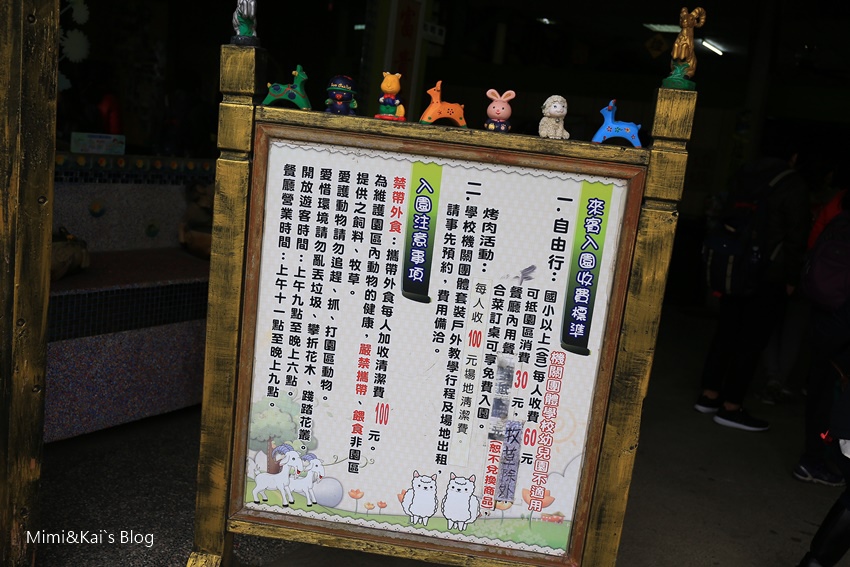 來賓入園收費標準
機關團體學校幼兒園不適用
一．自由行：國小以上(含)每人收費60元
可抵園區消費30元。(恕不兌換商品)，
牧草除外
餐廳內用餐
合菜訂桌可享免費入園。
烤肉活動：每人收100元場地清潔費。
二．學校機關團體套裝戶外教學行程及場地出租，
請事先預約，費用備洽。
入園注意事項
禁帶外食：攜帶外食每人加收清潔費100元。
為維護園區內動物的健康，嚴禁攜帶、餵食非園區
提供之飼料、牧草。
愛護動物請勿追趕、抓、打園區動物。
愛惜環境請勿亂丟垃圾、攀折花木、踐踏花叢。
開放遊客時間：上午九點至晚上六點。
餐廳營業時間：上午十一點至晚上九點。
Mimi&Kai`s Blog